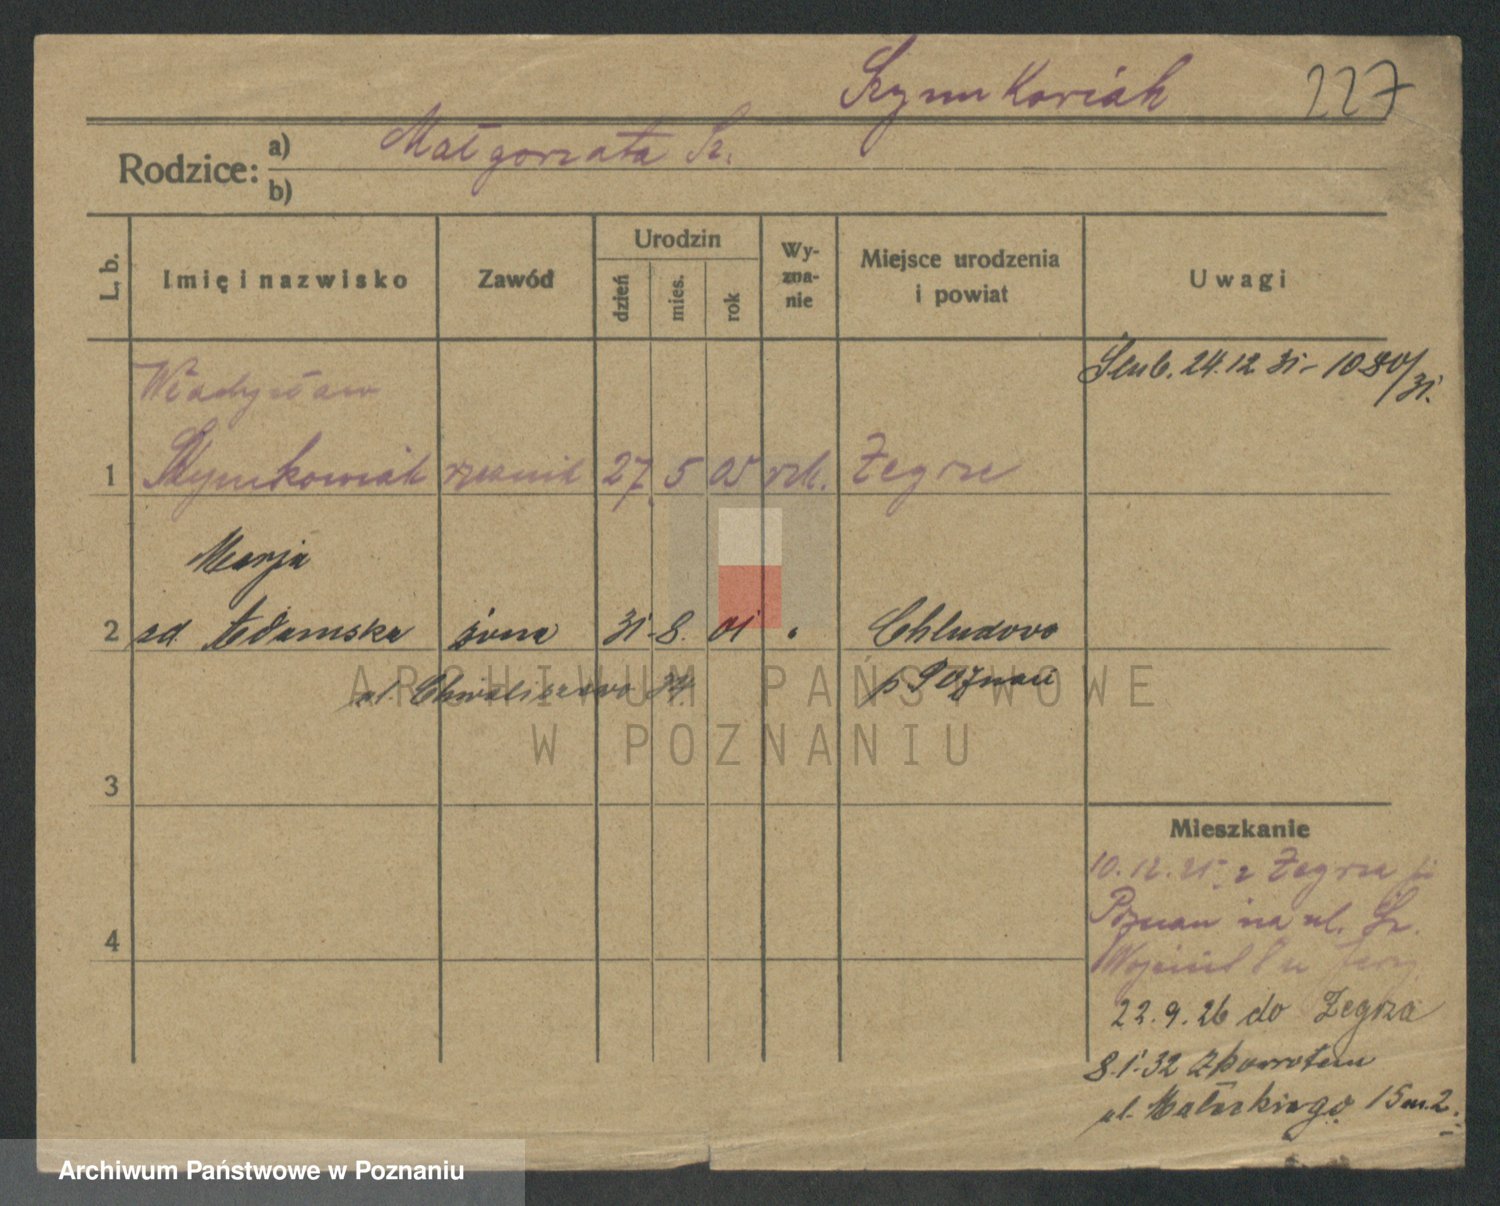 Szymkowiak 227
Rodzice: a) Małgorzata Sz.
b)
L. b. Imię i nazwisko Zawód Urodzin dzień mies. rok Wyznanie Miejsce urodzenia i powiat Uwagi
Ślub. 24.12.31 - 1080/31.
Władysław
1 Szymkowiak rzeźnik 27. 5 05 rzk. Żegrze
Marja
2 zd Adamska żona 31 8. 01 " Chludowo
ul. Chwaliszewo 34 p Poznań
3
Mieszkanie
10.12.25 z Żegrza p.
Poznań na ul. Św.
4
Wojciech 8 u
22.9.26 do Żegrza
8.1.32 z powrotem
ul. Małeckiego 15 m.2.
ARCHIWUM PAŃSTWOWE
W POZNANIU
Archiwum Państwowe w Poznaniu